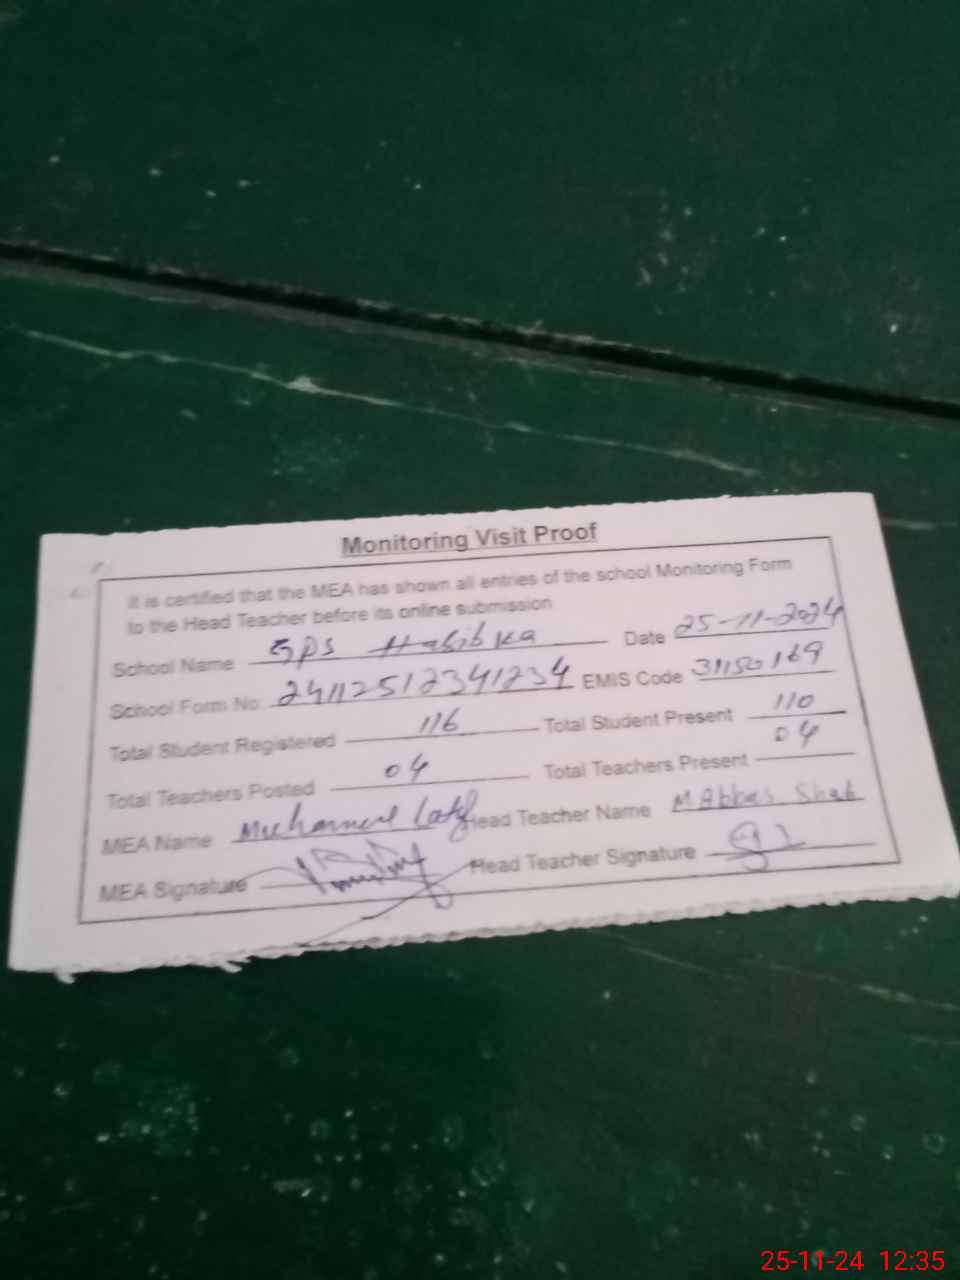 Monitoring Visit Proof
It is certified that the MEA has shown all entries of the school Monitoring Form
to the Head Teacher before its online submission
School Name GPS Habib ka Date 25-11-2024
School Form No: 24112512341234 EMIS Code 31150169
Total Student Registered 116 Total Student Present 110
Total Teachers Posted 04 Total Teachers Present 04
MEA Name Muhammad Latif Head Teacher Name M Abbas Shah
MEA Signature Head Teacher Signature
25-11-24 12:35